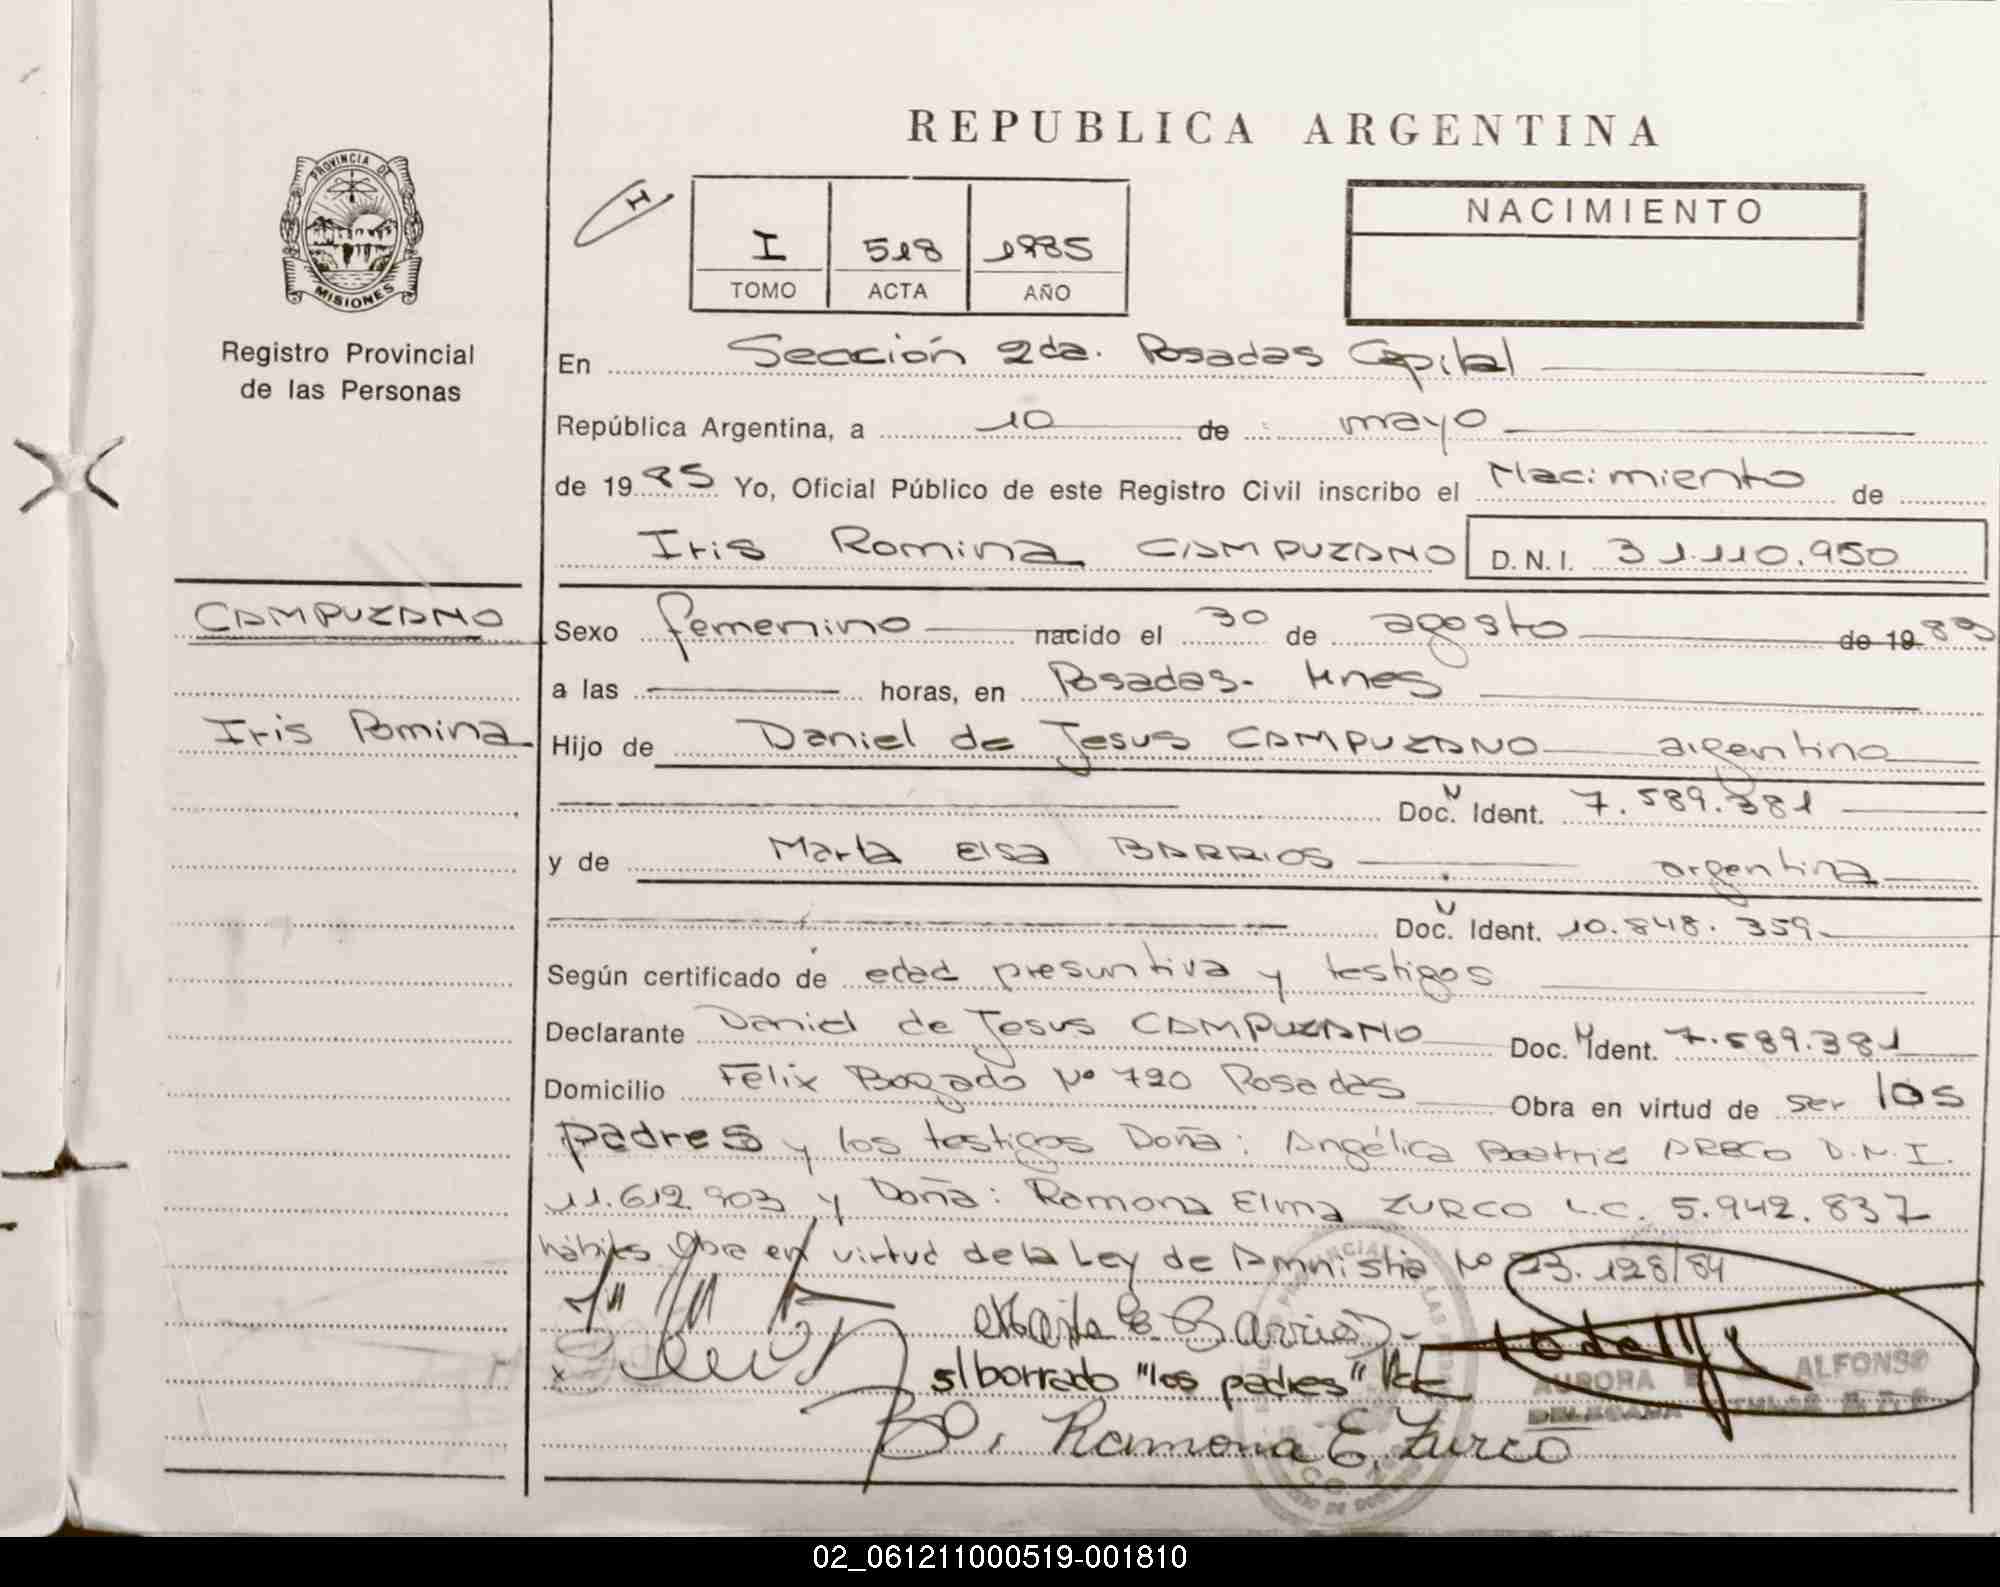 REPUBLICA ARGENTINA
PROVINCIA DE
MISIONES
Registro Provincial
de las Personas
I 518 1985
TOMO ACTA AÑO
NACIMIENTO
En Sección 2da. Posadas Capital
República Argentina, a 10 de mayo
de 1985 Yo, Oficial Público de este Registro Civil inscribo el Nacimiento de
Iris Romina CAMPUZANO D.N.I. 31.110.950
CAMPUZANO
Iris Romina
Sexo femenino nacido el 30 de agosto de 1983
a las horas, en Posadas- Mnes
Hijo de Daniel de Jesus CAMPUZANO argentino
Doc. Ident. 7.589.381
y de Marta Elsa BARRIOS argentina
Doc. Ident. 10.848.359
Según certificado de edad presuntiva y testigos
Declarante Daniel de Jesus CAMPUZANO Doc. Ident. 7.589.381
Domicilio Felix Bogado Nº 720 Posadas Obra en virtud de ser los
padres y los testigos Doña: Angélica Beatriz ARECO D.N.I.
11.612.903 y Doña: Ramona Elma ZURCO L.C. 5.942.837
hábiles Obra en virtud de la Ley de Amnistia Nº 23.128/84
Marta E. Barrios
s/borrado "los padres" Vale
AURORA E ALFONSO
DELEGADA TITULAR
Ramona E, Zurco
02_061211000519-001810